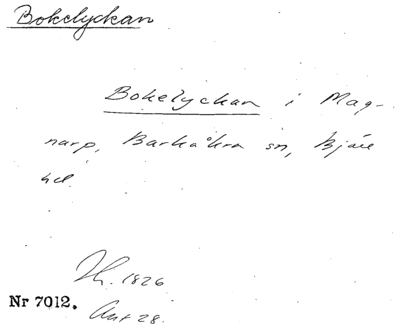 Bokelyckan
Bokelyckan i Mag-
narp, Barkåkra sn, Bjäre
hd.
H. 1826
Nr 7012.
Akt 28.